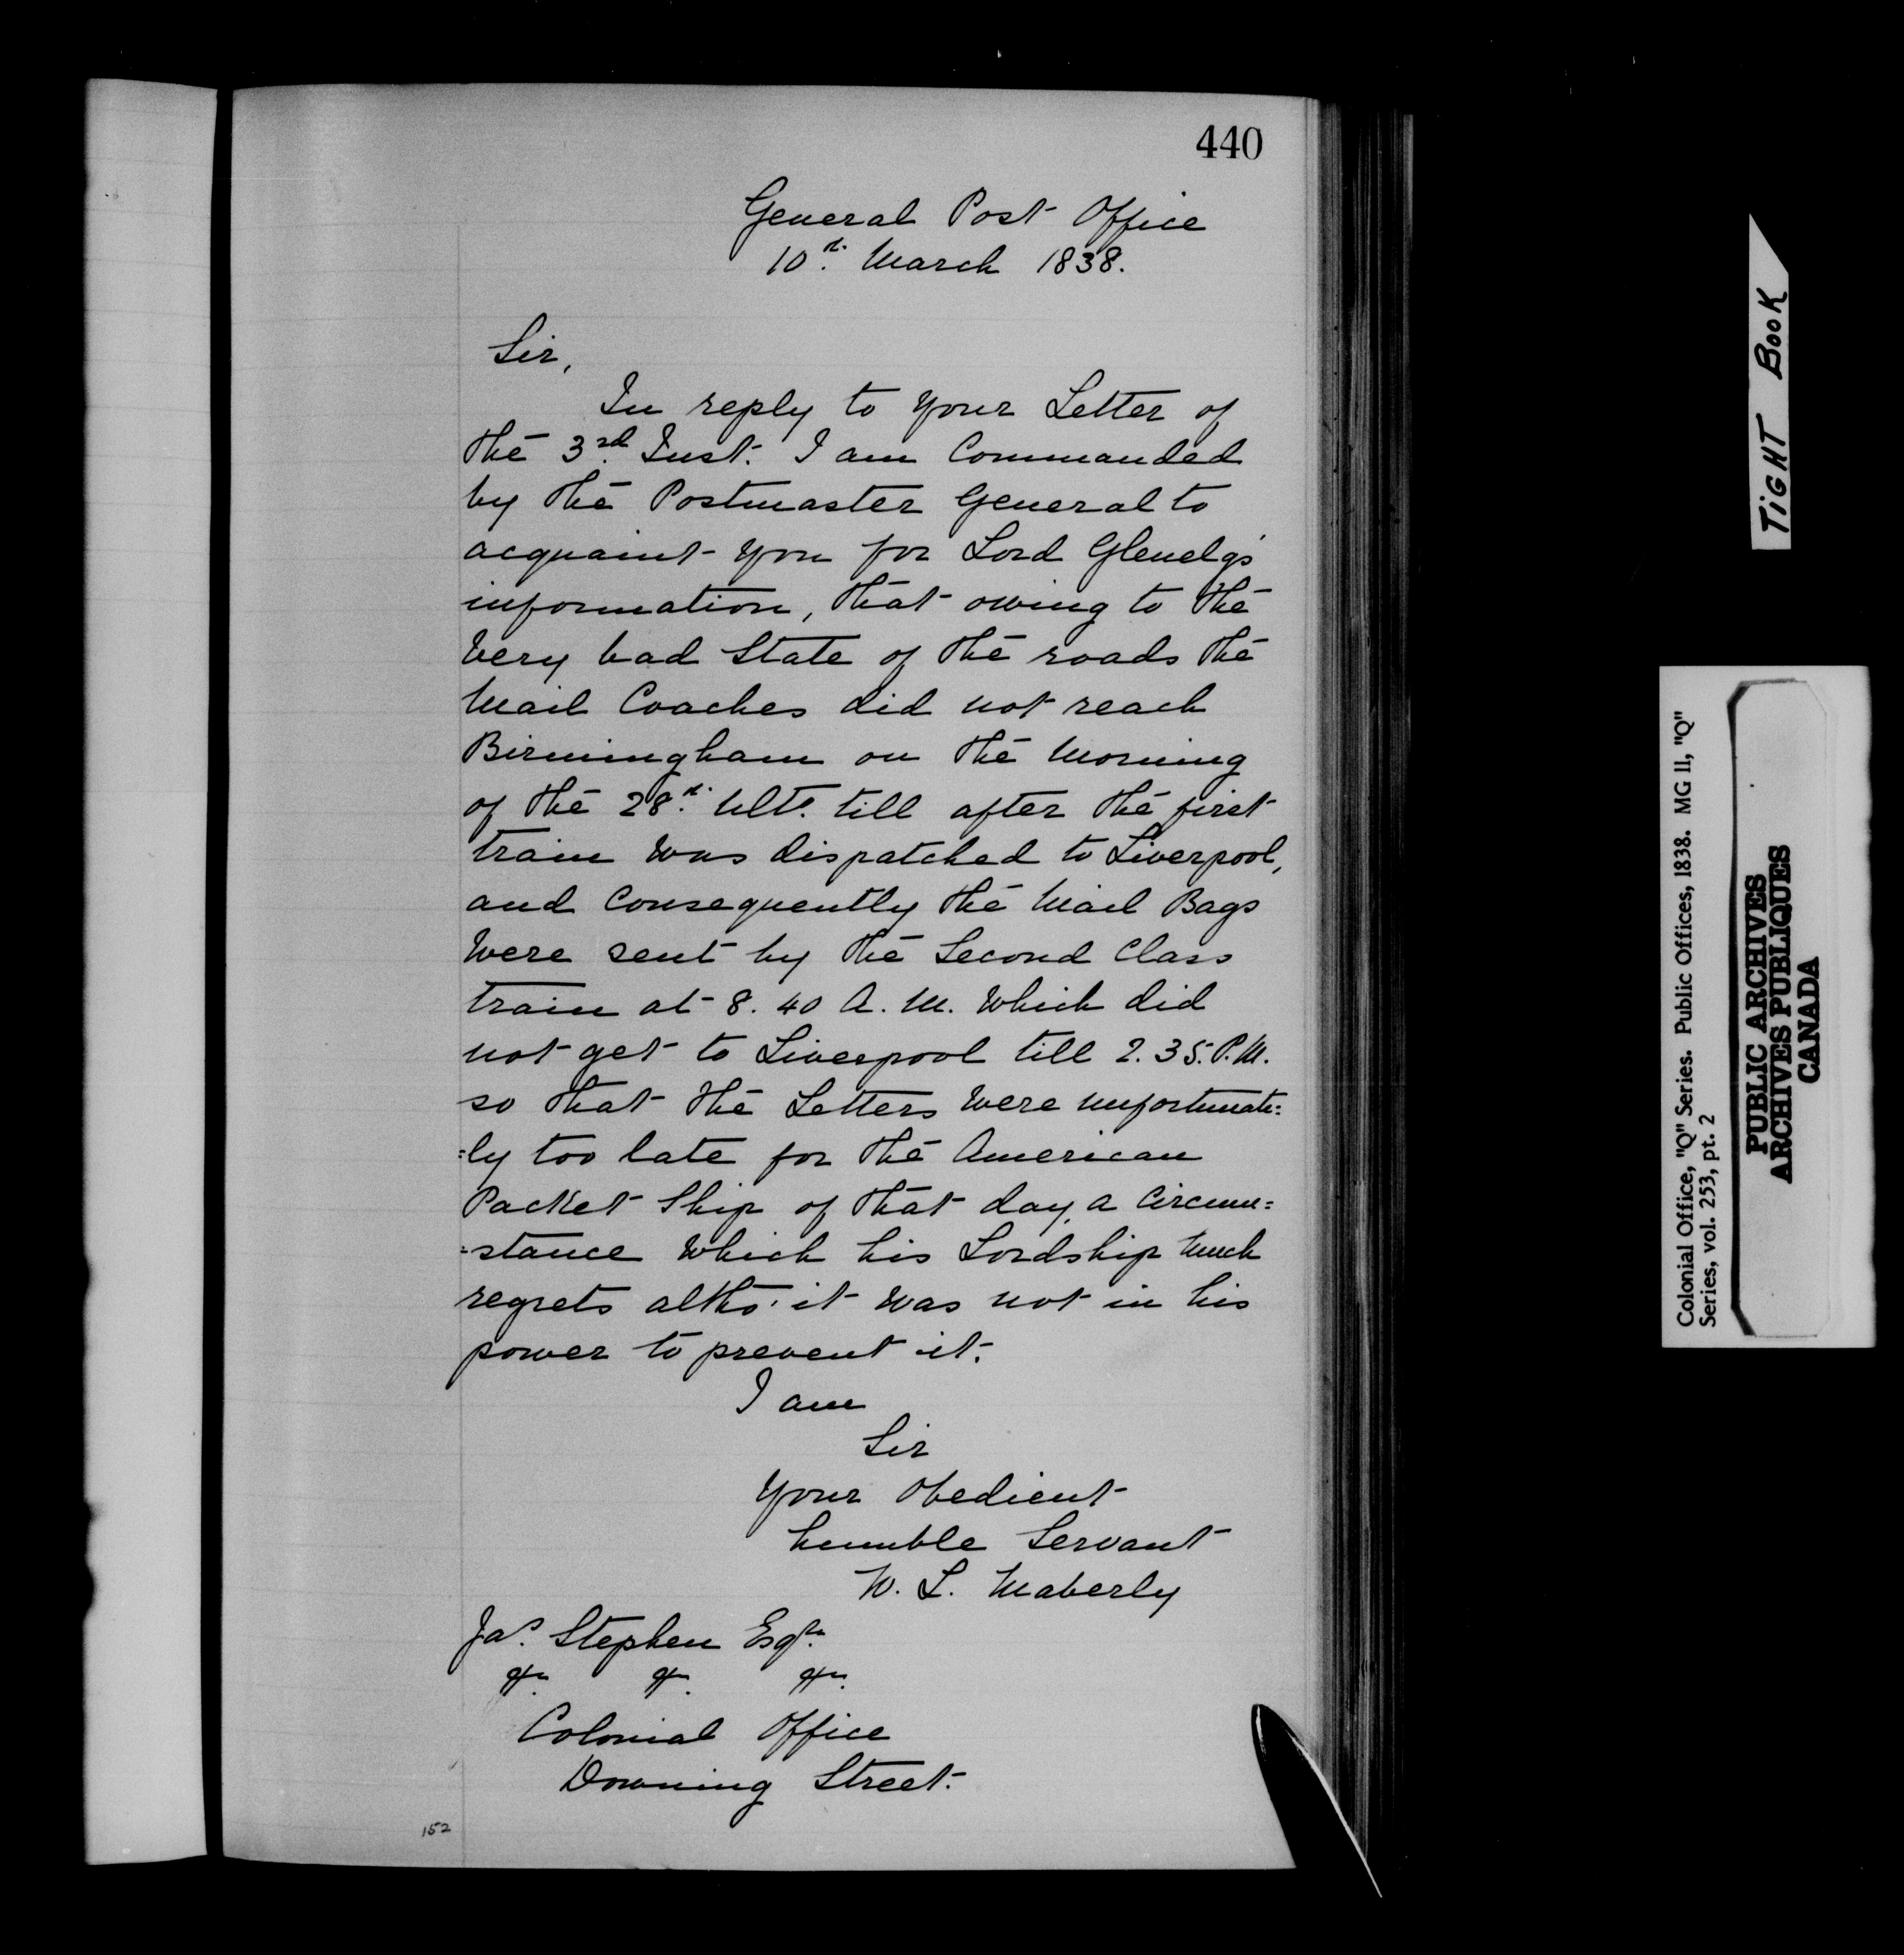 440
General Post Office
10th. March 1838.
Sir,
In reply to your Letter of
the 3rd. Inst. I am Commanded
by the Postmaster General to
acquaint you for Lord Glenelg's
information, that owing to the
very bad State of the roads the
Mail Coaches did not reach
Birmingham on the Morning
of the 28th. Ulto. till after the first
train was dispatched to Liverpool,
and Consequently the Mail Bags
were sent by the Second Class
train at 8.40 A.M. which did
not get to Liverpool till 2.35.P.M.
so that the Letters were unfortunate=
=ly too late for the American
Packet Ship of that day, a Circum=
=stance which his Lordship much
regrets altho' it was not in his
power to prevent it.
I am
Sir
Your Obedient
humble Servant
W. L. Maberly
Jas. Stephen Esqre.
&c. &c. &c.
Colonial Office
Downing Street.
152
TIGHT BOOK
Colonial Office, "Q" Series. Public Offices, 1838. MG 11, "Q"
Series, vol. 253, pt. 2
PUBLIC ARCHIVES
ARCHIVES PUBLIQUES
CANADA